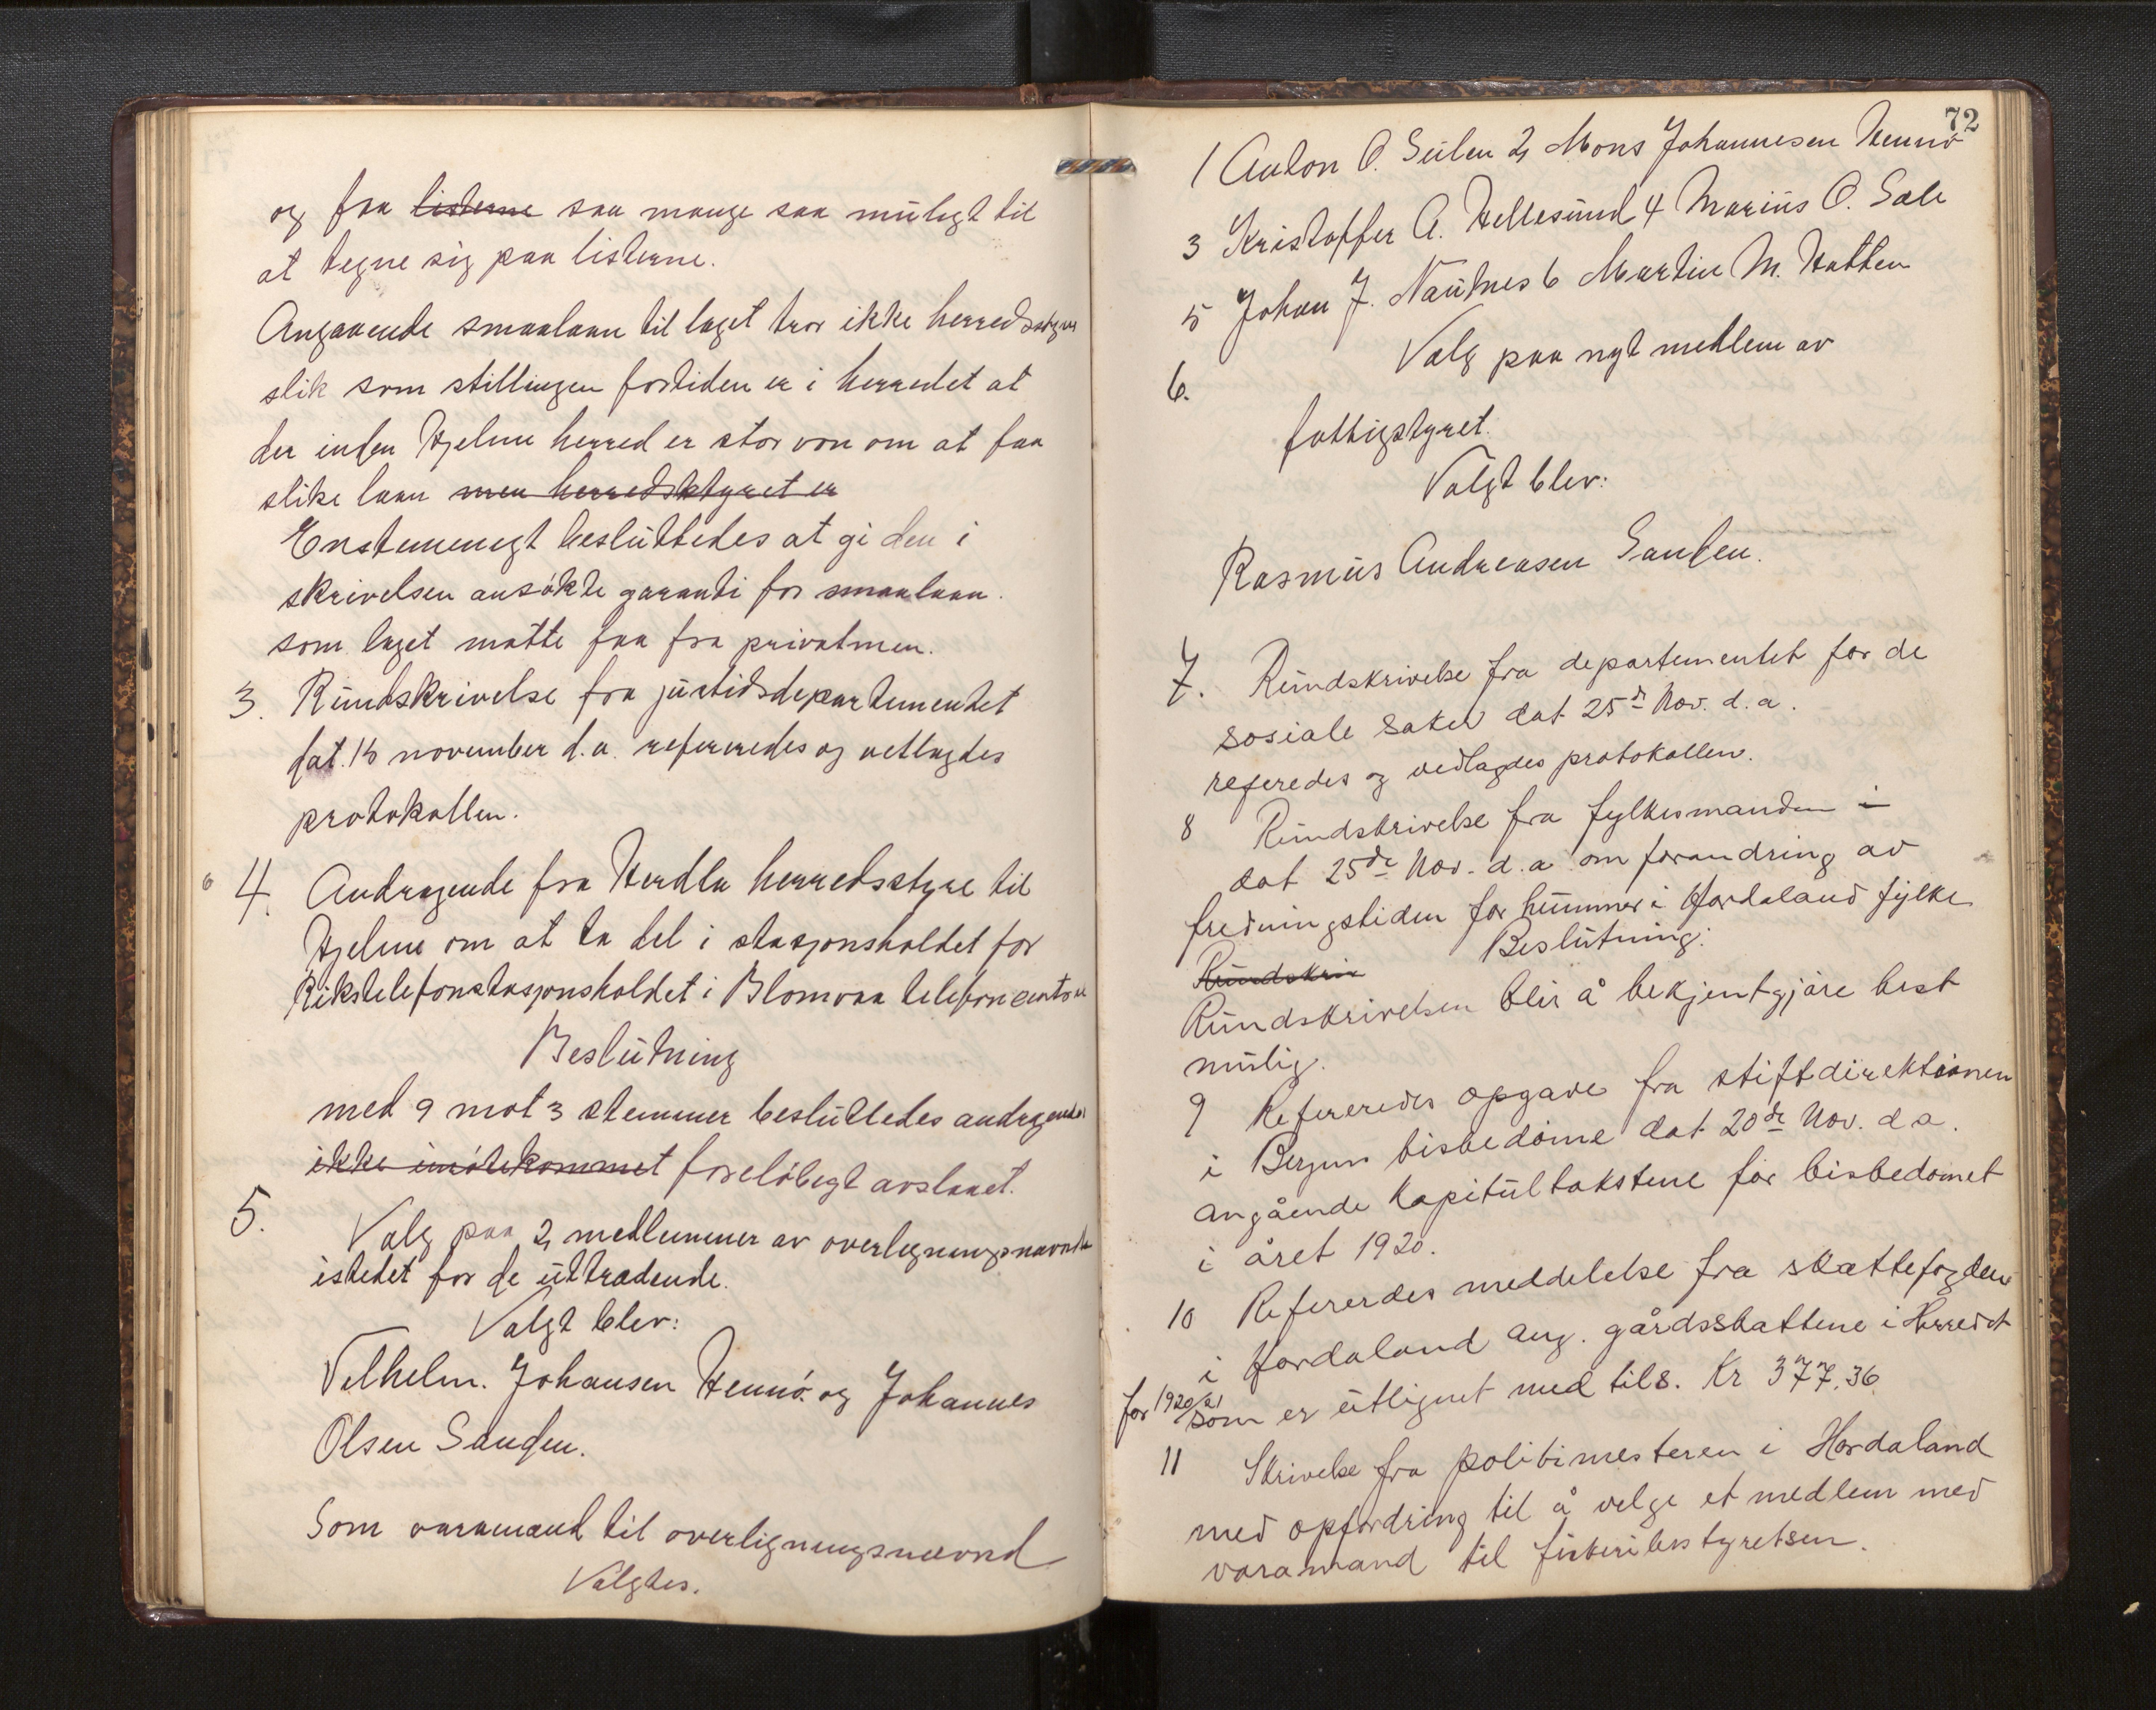 og faa ~~listerne~~ saa mange saa muligt til
at tegne sig paa listerne.
Angaaende smaalaan til laget tror ikke herredsstyre
slik som stillingen fortiden er i herredet at
der inden Hjelme herred er stor von om at faa
slike laan ~~men herredsktyret er~~
Enstemmegt besluttedes at gi den i
skrivelsen ansøkte garanti for smaalaan.
som laget matte faa fra privatmen.
3. Rundskrivelse fra justidsdepartementet
dat. 13 november d.a. refereredes og vetlagdes
protokollen.
4. Andragende fra Herdla herredsstyre til
Hjelme om at ta del i stasjonsholdet for
Rikstelefonstasjonsholdet i Blomvaa telefoncentral
Beslutning
med 9 mot 3 stemmer besluttedes andragendet
~~ikke imøtekommet~~ foreløbegt avslaaet.
5. Valg paa 2 medlemmer av overlegningsnevnda
istedet for de uttradende.
Valgt blev:
Velhelm. Johansen Hennø. og Johannes
Olsen Sanden.
Som varamand til overligningsnævnd
Valgtes.
72
1 Anton O. Seilen 2, Mons Johannesen Hennø
3 Kristoffer A. Hellesund 4 Marius O. Sæle
5 Johan J. Nautnes 6 Martin M. Hatten
6. Valg paa nyt medlem av
fattigstyret.
Valgt blev:
Rasmus Andreasen Sanden.
7. Rundskrivelse fra departementet for de
sosiale saker dat 25de Nov. d.a.
referedes og vedlagdes protokollen.
8 Rundskrivelse fra fylkesmanden ~~i~~
dat 25de Nov. d.a om forandring av
fredningstiden for hummer i Hordaland fylke
Beslutning:
~~Rundskriv~~
Rundskrivelsen blir å bekjentgjøre best
mulig.
9 Refereredes opgave fra stiftdirektionen
i Bergens bisbedøme dat 20de Nov. d a.
angående Kapitultakstene før bisbedømet
i året 1920.
10 Refererdes meddelelse fra skattefogden
i Hordaland ang. gårdsskattene i Herredet
for 1920/21 som er utlignet med tils. Kr 377.36
11 Skrivelse fra politimesteren i Hordaland
med opfordring til å velge et medlem med
varamand til fiskeribestyrelsen.